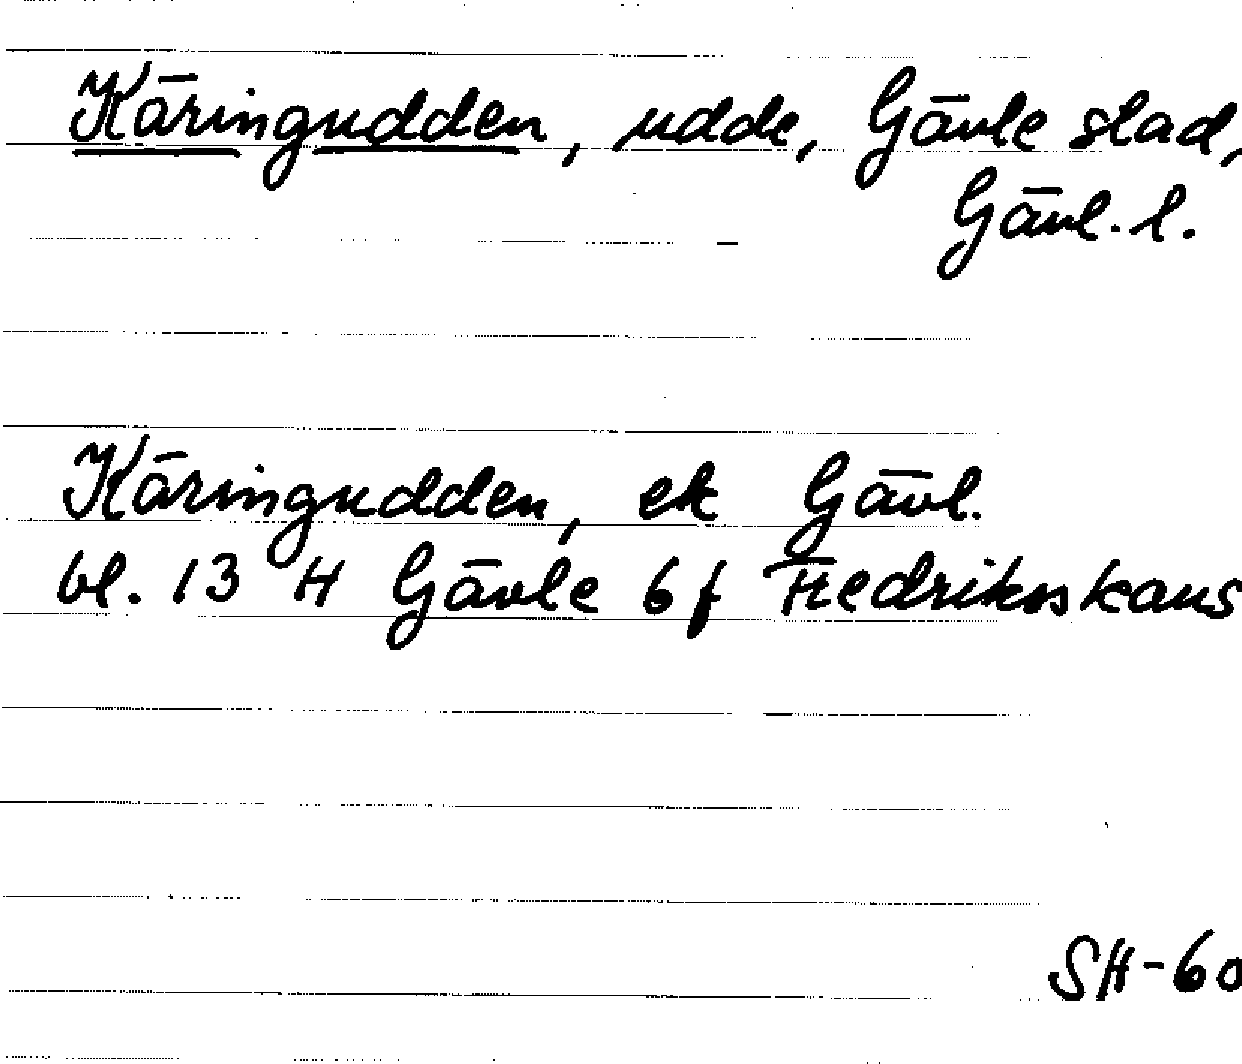 Käringudden, udde, Gävle stad,
Gävl. l.
Käringudden, ek Gävl.
bl. 13 H Gävle 6f Fredriksskans
SH-60